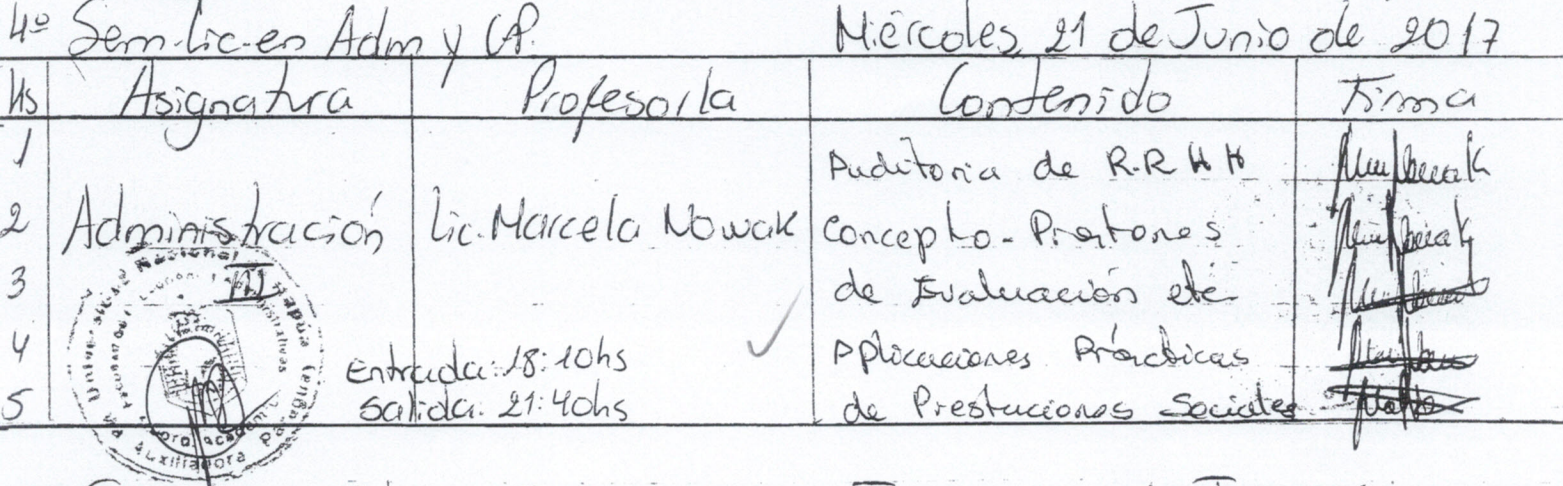 4º Sem-Lic-en Adm y CP. Miércoles, 21 de Junio de 2017
Hs Asignatura Profesor/la Contenido Firma
1 Auditoria de R.R H H
2 Administración Lic. Marcela Nowak Concepto -
3 III de Evaluación etc
4 Entrada: 18:10hs Aplicaciones Prácticas
5 Salida: 21:40hs de Prestaciones Sociales
Nacional
Auxiliadora